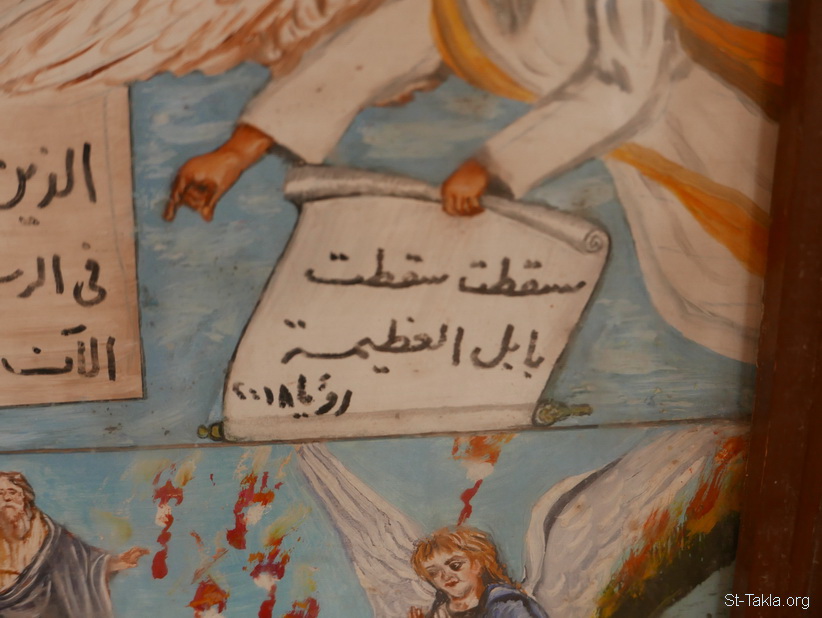 الذين
فى
الآن
سقطت سقطت
بابل العظيمة
رؤيا ١٨:٢
St-Takla.org